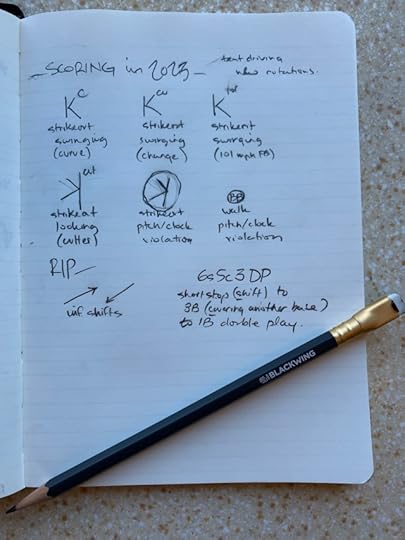 SCORING in 2023
test driving
new notations.
K c
K cu
K
strikeout
swinging
(curve)
strikeout
swinging
(change)
strikeout
swinging
(101 mph FB)
K cut
K
BB
strikeout
looking
(cutter)
strikeout
pitch/clock
violation
walk
pitch/clock
violation
RIP
inf shifts
6s5c3 DP
shortstop (shift) to
3B (covering another base)
to 1B double play.
BLACKWING